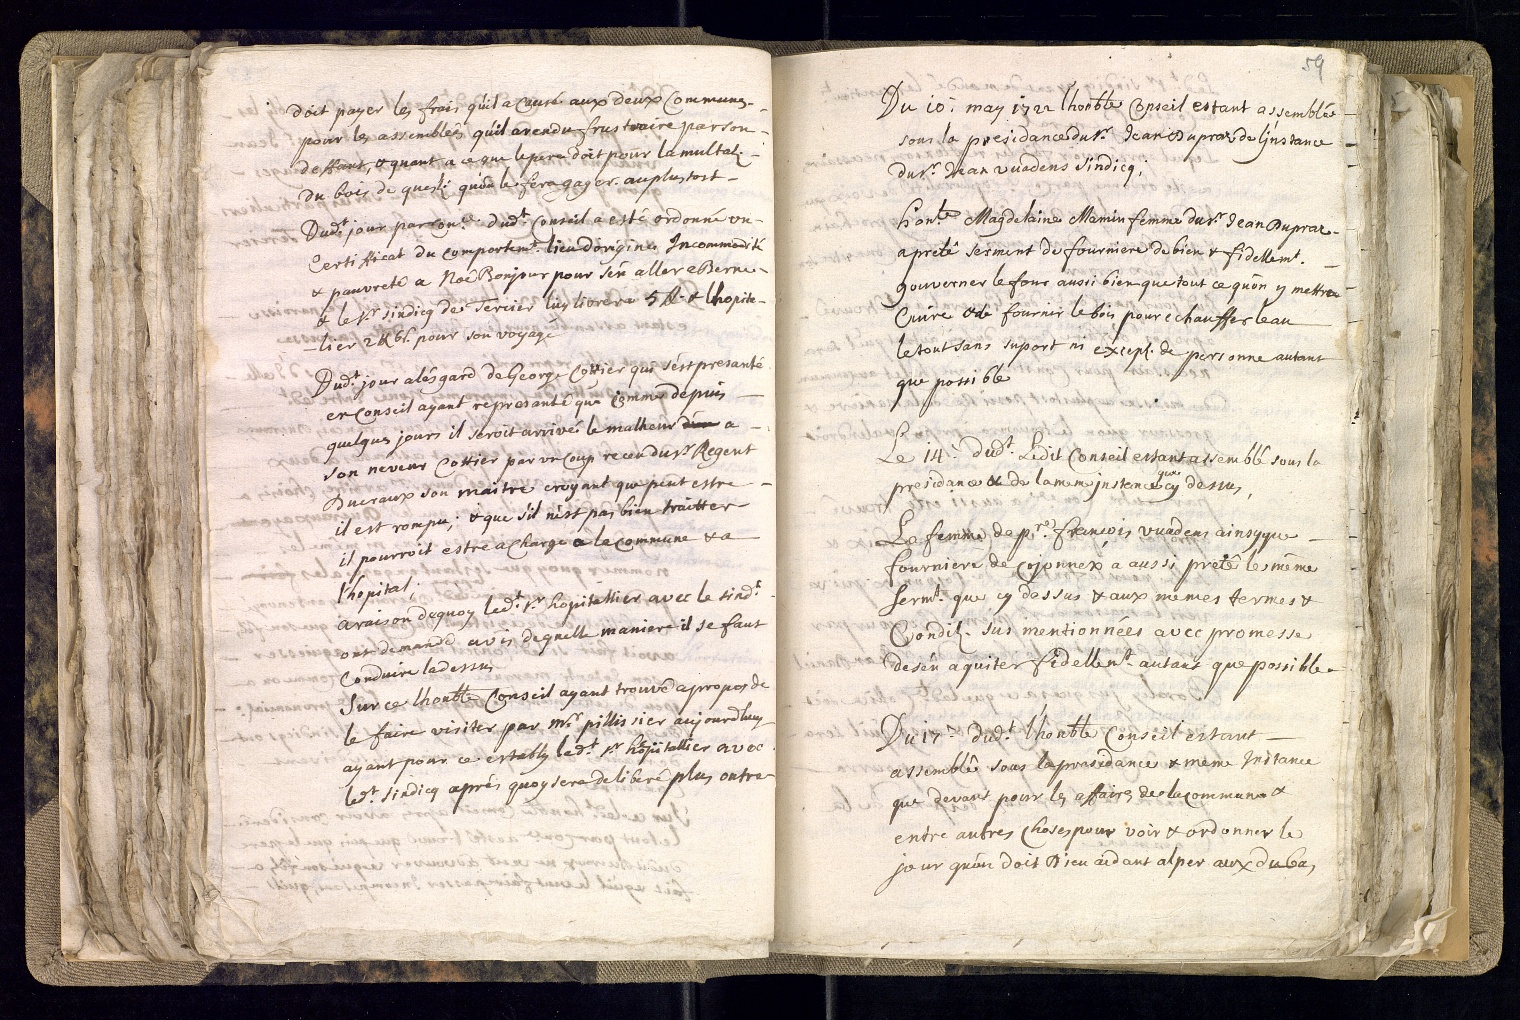 doit payer les frais quil a Causé aux deux Communes
pour les assemblées quil a rendu frustraire par son
deffaut, & quant a ce que le pere doit pour la multat.
du bois de quest. quon le fera gager au plus tost
Dud.t jour par Con.e dud.t Conseil a esté ordonné un
Certifficat du comportem.t lieu dorigine Incommodité
& pauvreté a Noé Bonjour pour sén aller a Berne
& le s.r sindicq de Tercier luy livrera 5 & lhopite-
-lier 2 pour son voyage
Dud.t jour alésgard de George Cottier qui sést presanté
en Conseil ayant representé que comme depuis
quelques jours il seroit arrivés le malheur a
son neveur Cottier par un Coup receu du s.r Regent
Ducraux son maitre croyant que peut estre
il est rompu; & que s'il nést pas bien traitter
il pourroit estre a Charge a le Commune & a
lhopital;
a raison dequoy led.t s.r hopitallier avec le sind.t
ont demandé avis de quelle maniere il se faut
Conduire la dessus
Sur ce lhonble Conseil ayant trouvé apropos de
le faire visiter par m.r pillissier aujourdhuy
ayant pour ce estably led.t s.r hopitallier avec
led.t sindicq aprés quoy sera deliberé plus outre
59
Du 10.e may 1722 lhonble Conseil estant assemblés
sous la presidance du s.r Jean Dupraz de linstance
du s.r Jean vuadens Sindicq;
honble Magdelaine Mamin femme du s.r Jean Dupraz
a preté serment de fourniere de bien & fidellem.t
gouverner le four aussi bien que tout ce quón y mettra
Cuire & de fournir le bois pour échauffer leau
le tout sans suport ni except. de personne autant
que possible
Le 14.e dud.t Ledit Conseil estant assemblé sous la
presidance & de la mem instence que cy dessus,
La femme de p.re francois vuadens ainsy que
fourniere de Cojonnex a aussi preté le même
serm.t que cy dessus & aux mêmes termes &
Condit. sus mentionnées avec promesse
desén aquiter fidellem.t autant que possible
Du 17.e dud.t lhonble Conseil estant
assemblé sous la presidance & meme Instance
que devant pour les affaires de la commune &
entre autres Choses pour voir & ordonner le
jour quón doit Dieu aidant alper aux du bas